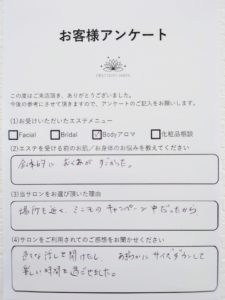 お客様アンケート
この度はご来店頂き、ありがとうございました。
今後の参考にさせて頂きますので、アンケートのご記入をお願いします。
(1)お受けいただいたエステメニュー
Facial Bridal Bodyアロマ 化粧品相談
(2)エステを受ける前のお肌/お身体のお悩みを教えてください
全体的に
(3)当サロンをお選び頂いた理由
場所も近く、 キャンペーン中だったから
(4)サロンをご利用されてのご感想をお聞かせください
話しを聞けたし、 サイズダウンして
楽しい時間を過ごせました。